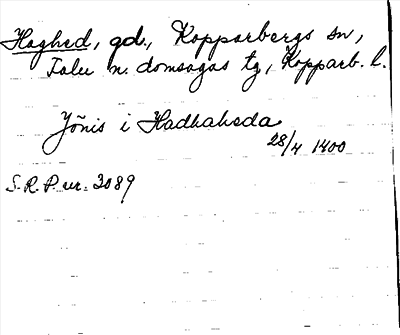 Haghed, gd., Kopparbergs sn,
Falu n. domsagas tg, Kopparb. l.
Jönis i Hadhaheda
28/4 1400
S.R.P. nr. 3089